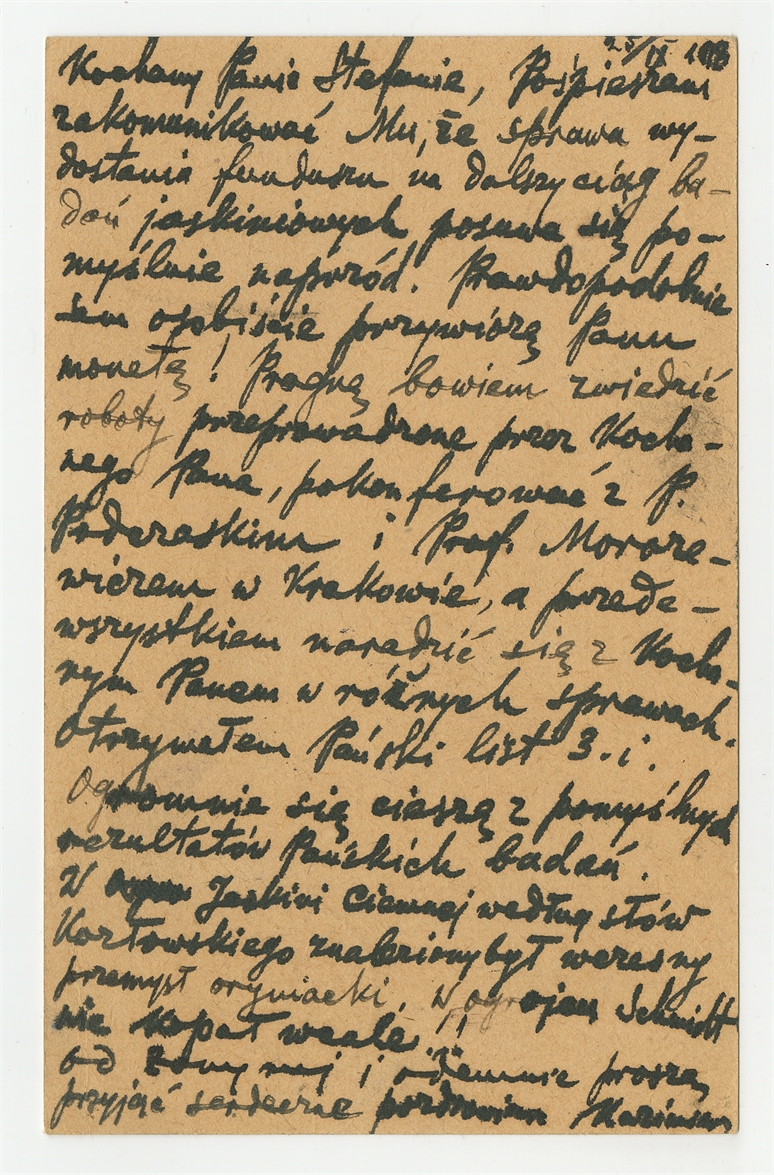 25/IX 1918
Kochany Panie Stefanie, Pośpieszam
zakomunikować Mu, że sprawa wy-
dostania funduszu na dalszy ciąg ba-
dań jaskiniowych posuwa się po-
myślnie naprzód. Prawdopodobnie
sam osobiście przywiozę Panu
monetę! Pragnę bowiem zwiedzić
roboty przeprowadzone przez Kocha-
nego Pana, pokonferować z P.
Podczaskim i Prof. Moroze-
wiczem w Krakowie, a przede-
wszystkiem naradzić się z Kocha-
nym Panem w różnych sprawach.
Otrzymałem Pański list 3. i.
Ogromnie się cieszę z pomyślnych
rezultatów Pańskich badań.
W Jaskini Ciemnej według słów
Kozłowskiego znaleziony był wczesny
przemysł oryniacki, w ogrojcu Schmidt
nie kopał wcale!!
od żony mej i odemnie proszę
przyjąć serdeczne pozdrowienia